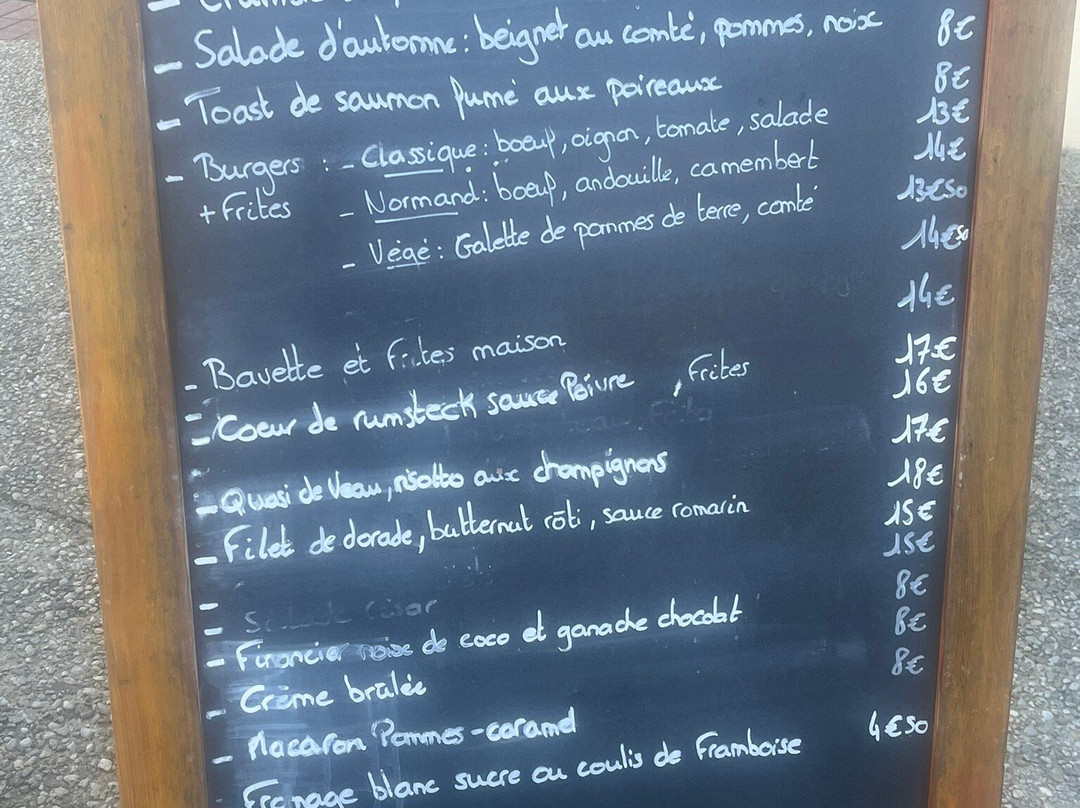 - Salade d'automne : beignet au comté, pommes, noix 8€
- Toast de saumon fumé aux poireaux 8€
- Burgers : - Classique : boeuf, oignon, tomate, salade 13€
+ Frites - Normand : boeuf, andouille, camembert 14€
- Végé : Galette de pommes de terre, comté 13€50
14€50
14€
- Bavette et frites maison 17€
- Coeur de rumsteck sauce Poivre, Frites 16€
17€
- Quasi de Veau, risotto aux champignons 18€
- Filet de dorade, butternut rôti, sauce romarin 15€
15€
- Salade César 8€
- Financier noix de coco et ganache chocolat 8€
- Crème brûlée 8€
- Macaron Pommes-caramel
Fromage blanc sucre ou coulis de Framboise 4€50